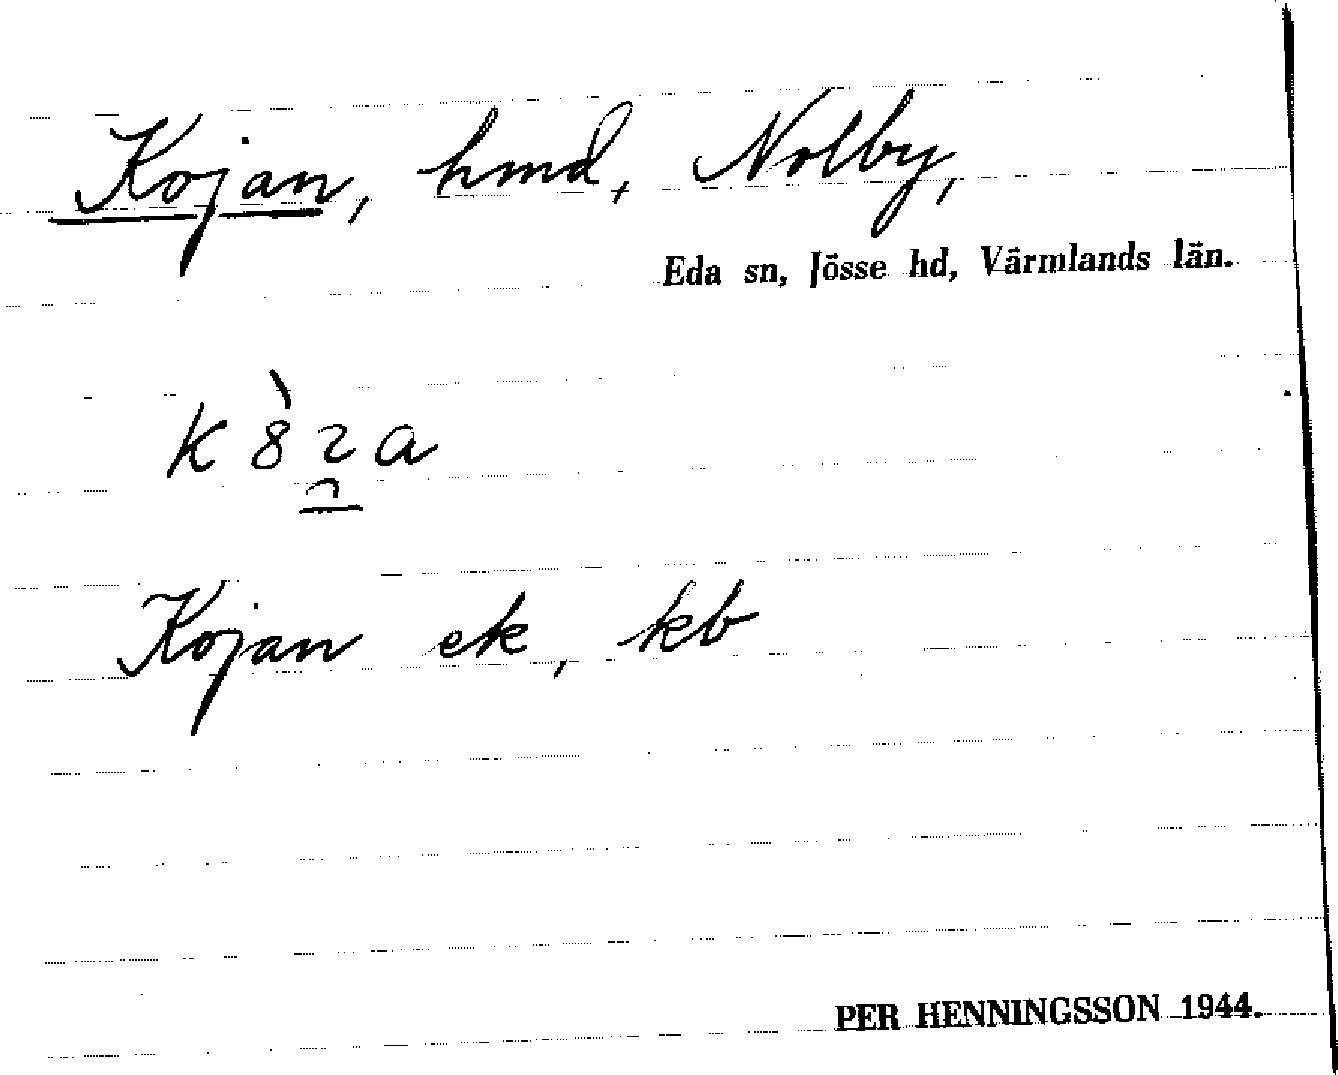 Kojan, hmd, Nolby,
Eda sn, Jösse hd, Värmlands län.
Kojan ek, kb
PER HENNINGSSON 1944.